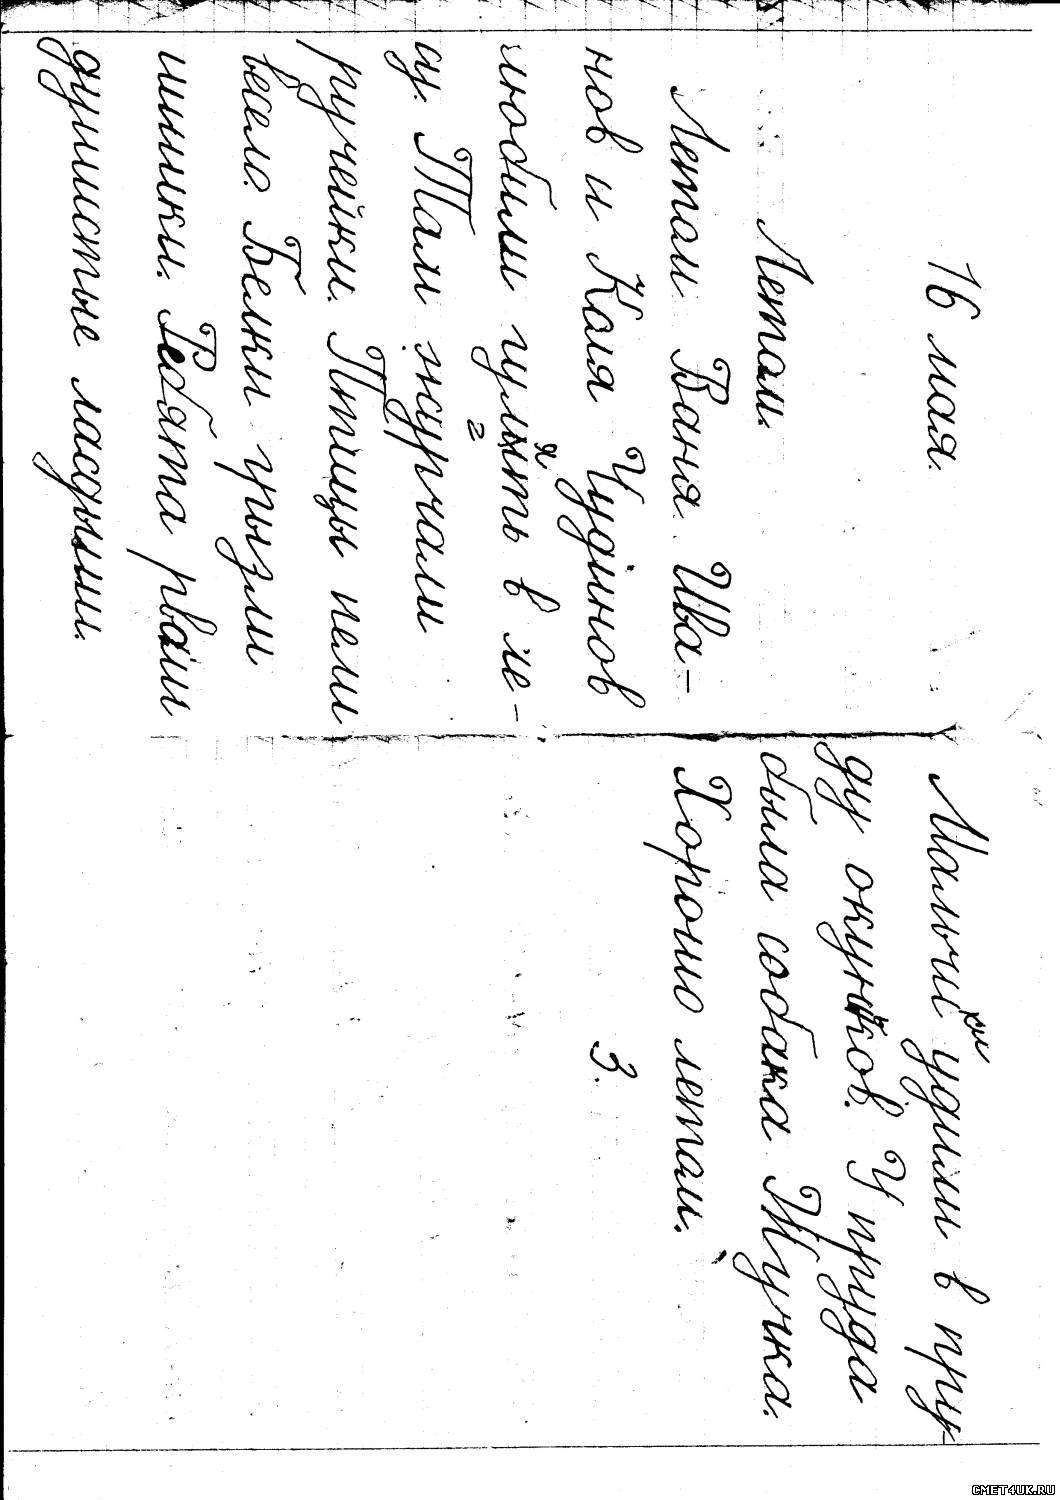 16 мая.
Летом.
Летом Ваня Ива-
нов и Коля Чудинов
любили гулять в ле-
су. Там журчали
ручейки. Птицы пели
весело. Белки грызли
шишки. Ребята рвали
душистые ласдыши.
Мальчики удили в пру-
ду окуньков. У пруда
была собака Жучка.
Хорошо летом.
3.
CMET4UK.RU